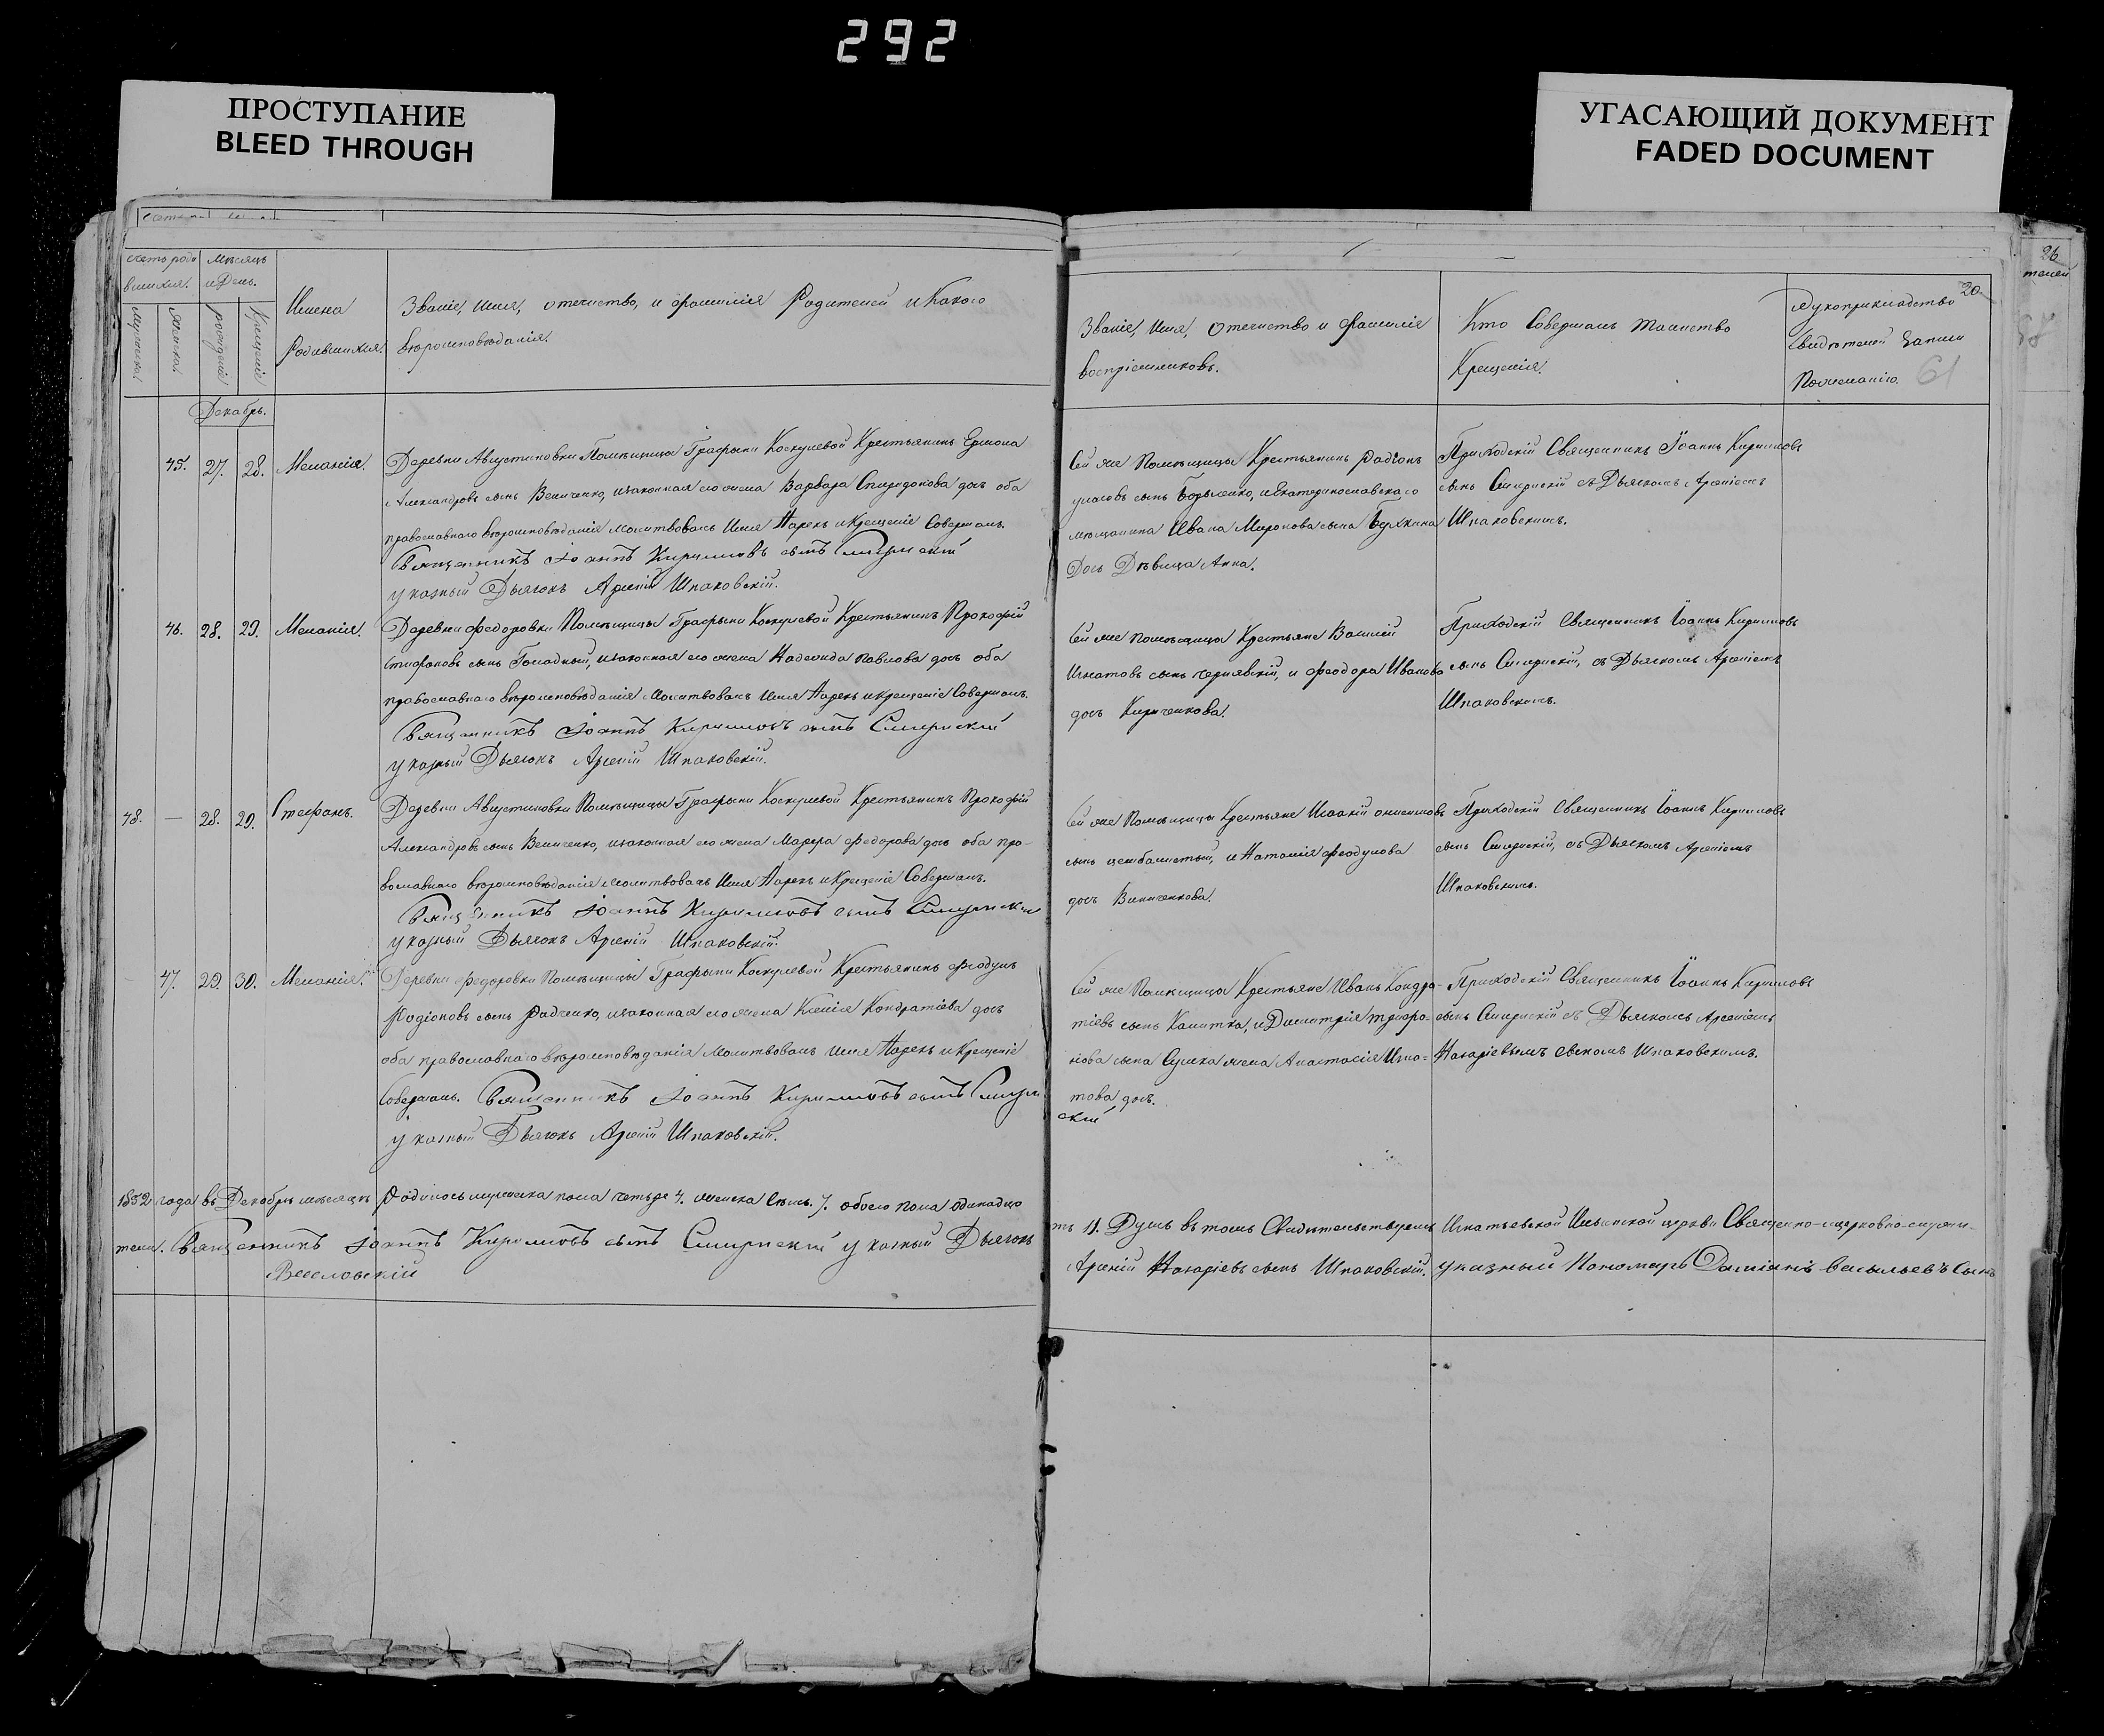 292
ПРОСТУПАНИЕ
BLEED THROUGH
УГАСАЮЩИЙ ДОКУМЕНТ
FADED DOCUMENT
26
телей
20
61
Счетъ роди
вшихся.
Мѣсяцъ
и День.
Мужеска.
Женска.
рожденія
Крещенія
Имена
Родившихся.
Званіе, Имя, отечество, и фамилія Родителей и Какого
вѣроисповѣданія.
Званіе, Имя, Отечество и Фамилія
воспріемниковъ.
Кто Совершалъ таинство
Крещенія.
Рукоприкладство
Свидѣтелей Записи
По желанію.
Декабрь.
45. 27. 28. Меланія.
Деревни Августиновки Помѣщицы Графыни Коскулевой Крестьянинъ Ермола
Александровъ сынъ Величенко, и законная его жена Варвара Спиридонова дочь оба
православнаго вѣроисповѣданія Молитвовалъ Имя Нарекъ и Крещеніе Совершалъ.
Священникъ Іоаннъ Кирилловъ сынъ Смирнскій
указный Дьячокъ Арсеній Шпаковскій.
Сей же Помѣщицы Крестьянинъ Радіонъ
сынъ и Екатеринославскаго
мещанина Ивана Миронова сына
Дочь Дѣвица Анна.
Приходскій Священникъ Іоаннъ Кирилловъ
сынъ Смирнскій съ Дьячкомъ Арсеніемъ
Шпаковскимъ.
46. 28. 29. Меланія.
Деревни Федоровки Помѣщицы Графыни Коскулевой Крестьянинъ Прокофій
Стефановъ сынъ Голадный, и законная его жена Надежда Павлова дочь оба
православнаго вѣроисповѣданія Молитвовалъ Имя Нарекъ и крещеніе Совершалъ.
Священникъ Іоаннъ Кирилловъ сынъ Смирнскій
указный Дьячокъ Арсеній Шпаковскій.
Сей же помѣщицы Крестьяне Василій
Игнатовъ сынъ Чернявскій, и Феодора Иванова
дочь Кириченкова.
Приходскій Священникъ Іоаннъ Кирилловъ
сынъ Смирнскій, съ Дьячкомъ Арсеніемъ
Шпаковскимъ.
48. — 28. 29. Стефанъ.
Деревни Августиновки Помѣщицы Графыни Коскулевой Крестьянинъ Прокофій
Александровъ сынъ Величенко, и законная его жена Марфа Федорова дочь оба пра-
вославнаго вѣроисповѣданія Молитвовалъ Имя Нарекъ и Крещеніе Совершалъ.
Священникъ Іоаннъ Кирилловъ сынъ Смирнскій
указный Дьячокъ Арсеній Шпаковскій.
Сей же Помѣщицы Крестьяне Исаакій
сынъ цымбалистый, и Наталія Феодулова
дочь Величенкова.
Приходскій Священникъ Іоаннъ Кирилловъ
сынъ Смирнскій, съ Дьячкомъ Арсеніемъ
Шпаковскимъ.
47. 29. 30. Меланія.
Деревни Федоровки Помѣщицы Графыни Коскулевой Крестьянинъ Феодулъ
Родіоновъ сынъ Радченко, и законная его жена Ксенія Кондратіева дочь
оба православнаго вѣроисповѣданія Молитвовалъ имя Нарекъ и Крещеніе
Совершалъ. Священникъ Іоаннъ Кирилловъ сынъ Смирн
скій
указный Дьячокъ Арсеній Шпаковскій.
Сей же Помѣщицы Крестьяне Иванъ Кондра-
тіевъ сынъ Калитка, и Димитрія Трифо-
нова сына Сушка жена Анастасія Игна-
това дочь.
Приходскій Священникъ Іоаннъ Кирилловъ
сынъ Смирнскій съ Дьячкомъ Арсеніемъ
Назаріевымъ сыномъ Шпаковскимъ.
1832 года въ Декабрѣ мѣсяцѣ Родилось мужеска пола четыре 4. женска семь. 7. обоего пола одинадца
ть 11. Душъ въ томъ Свидѣтельствуемъ Игнатьевской Ильинской церкви Священно-и церковно-служи-
тели. Священникъ Іоаннъ Кирилловъ сынъ Смирнскій указный Дьячокъ
Арсеній Назаріевъ сынъ Шпаковскій. указный Пономарь Даміанъ Васильевъ Сынъ
Веселовскій